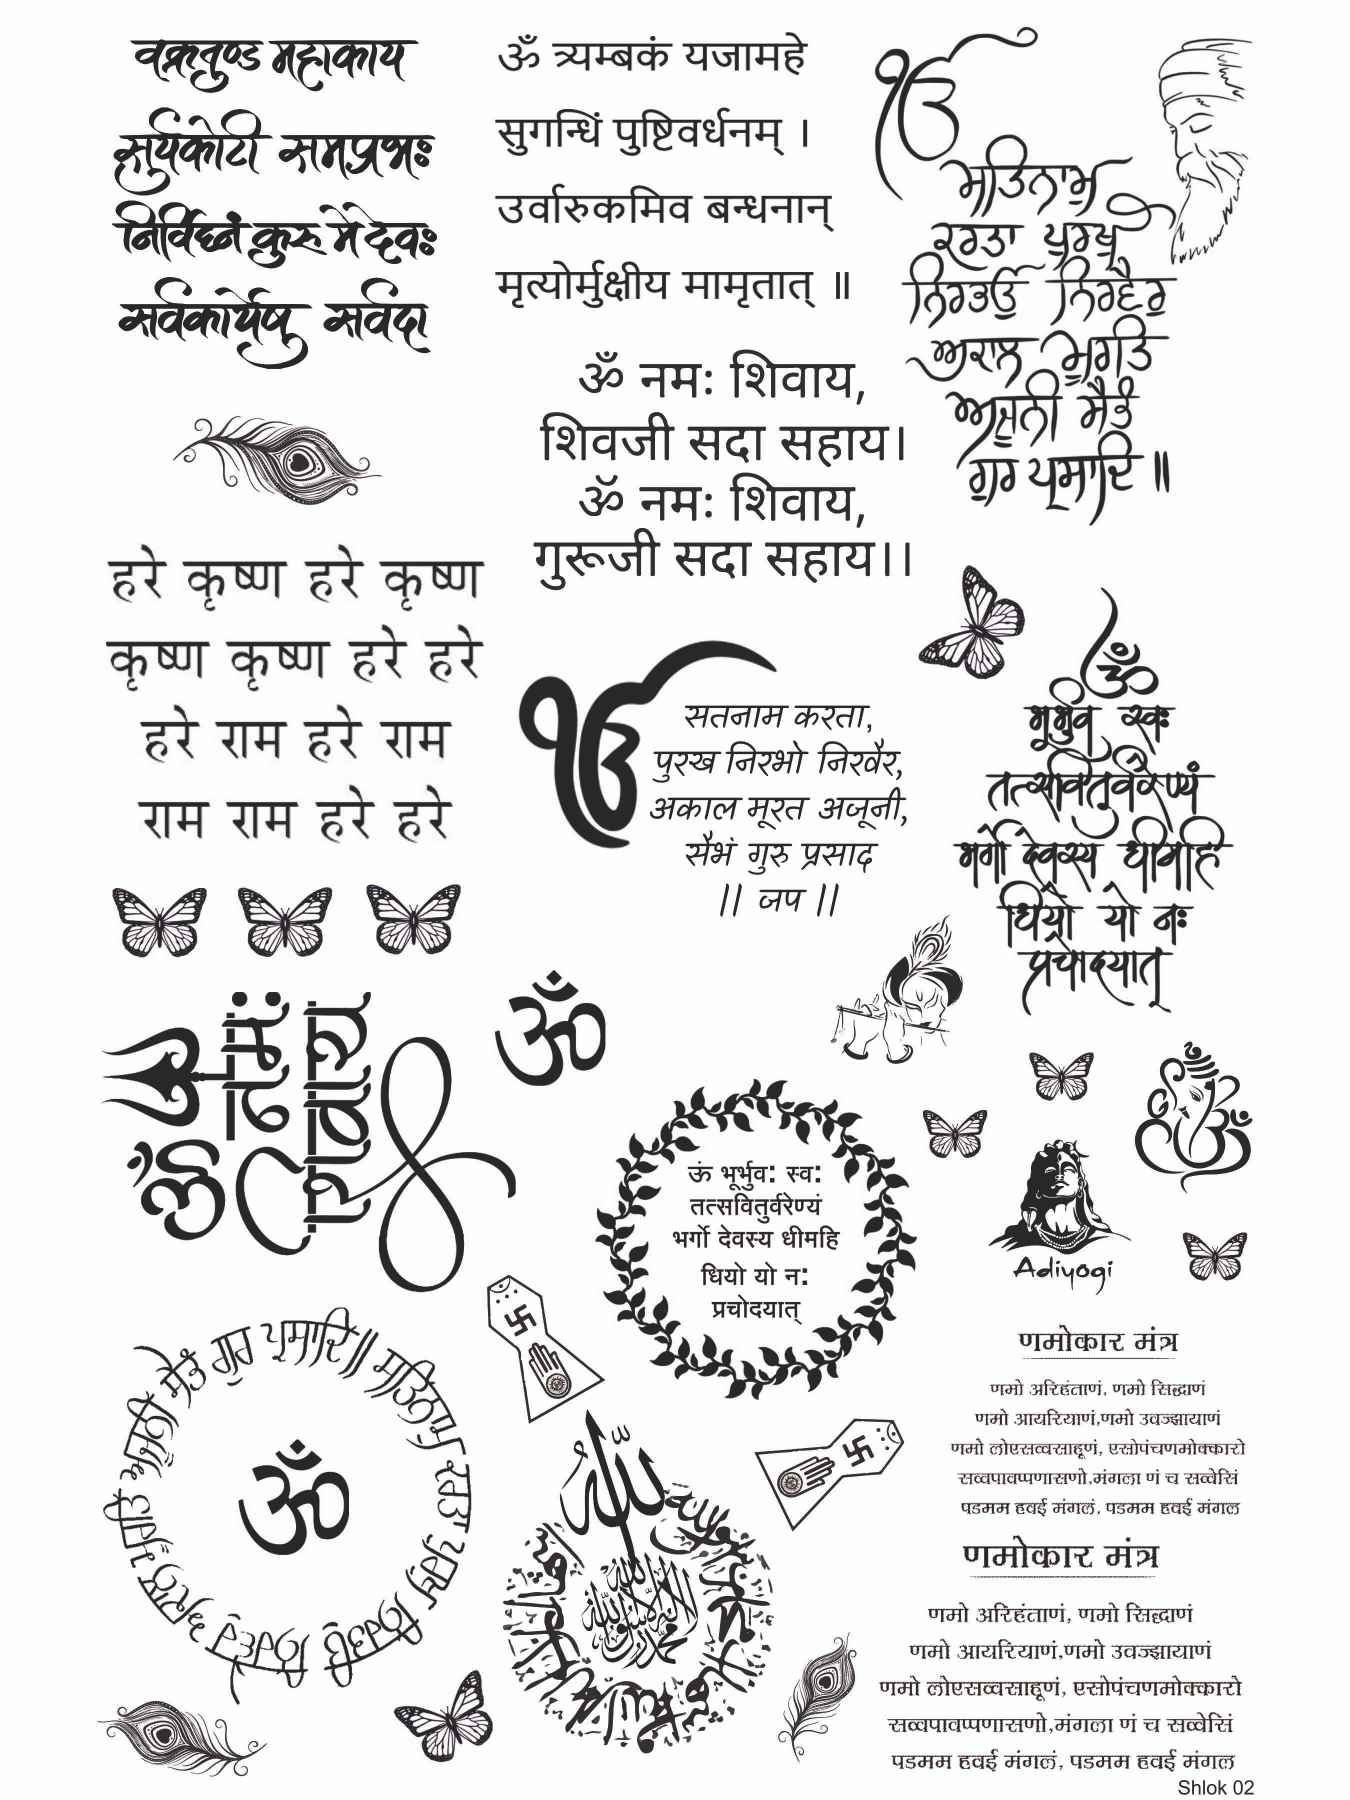 वक्रतुण्ड महाकाय
सुर्यकोटी समप्रभः
निर्विघ्नं कुरु मे देवः
सर्वकार्येषु सर्वदा
ॐ त्र्यम्बकं यजामहे
सुगन्धिं पुष्टिवर्धनम् ।
उर्वारुकमिव बन्धनान्
मृत्योर्मुक्षीय मामृतात् ॥
ੴ
ਸਤਿਨਾਮੁ
ਕਰਤਾ ਪੁਰਖੁ
ਨਿਰਭਉ ਨਿਰਵੈਰੁ
ਅਕਾਲ ਮੂਰਤਿ
ਅਜੂਨੀ ਸੈਭੰ
ਗੁਰ ਪ੍ਰਸਾਦਿ ॥
ॐ नमः शिवाय,
शिवजी सदा सहाय।
ॐ नमः शिवाय,
गुरूजी सदा सहाय।।
हरे कृष्ण हरे कृष्ण
कृष्ण कृष्ण हरे हरे
हरे राम हरे राम
राम राम हरे हरे
ੴ
सतनाम करता,
पुरख निरभो निरवैर,
अकाल मूरत अजूनी,
सैभं गुरु प्रसाद
।। जप ।।
ॐ
भूर्भुव स्वः
तत्सवितुर्वरेण्यं
भर्गो देवस्य धीमहि
धियो यो नः
प्रचोदयात्
ॐ
नमः
शिवाय
ॐ
ऊं भूर्भुवः स्वः
तत्सवितुर्वरेण्यं
भर्गो देवस्य धीमहि
धियो यो नः
प्रचोदयात्
ॐ
Adiyogi
ਸਤਿਨਾਮੁ ਕਰਤਾ ਪੁਰਖੁ ਨਿਰਭਉ ਨਿਰਵੈਰੁ ਅਕਾਲ ਮੂਰਤਿ ਅਜੂਨੀ ਸੈਭੰ ਗੁਰ ਪ੍ਰਸਾਦਿ ॥
ॐ
الله
لا إله إلا الله محمد رسول الله
णमोकार मंत्र
णमो अरिहंताणं, णमो सिद्धाणं
णमो आयरियाणं,णमो उवज्झायाणं
णमो लोएसव्वसाहूणं, एसोपंचणमोक्कारो
सव्वपावप्पणासणो,मंगला णं च सव्वेसिं
पडमम हवई मंगलं, पडमम हवई मंगल
णमोकार मंत्र
णमो अरिहंताणं, णमो सिद्धाणं
णमो आयरियाणं,णमो उवज्झायाणं
णमो लोएसव्वसाहूणं, एसोपंचणमोक्कारो
सव्वपावप्पणासणो,मंगला णं च सव्वेसिं
पडमम हवई मंगलं, पडमम हवई मंगल
Shlok 02